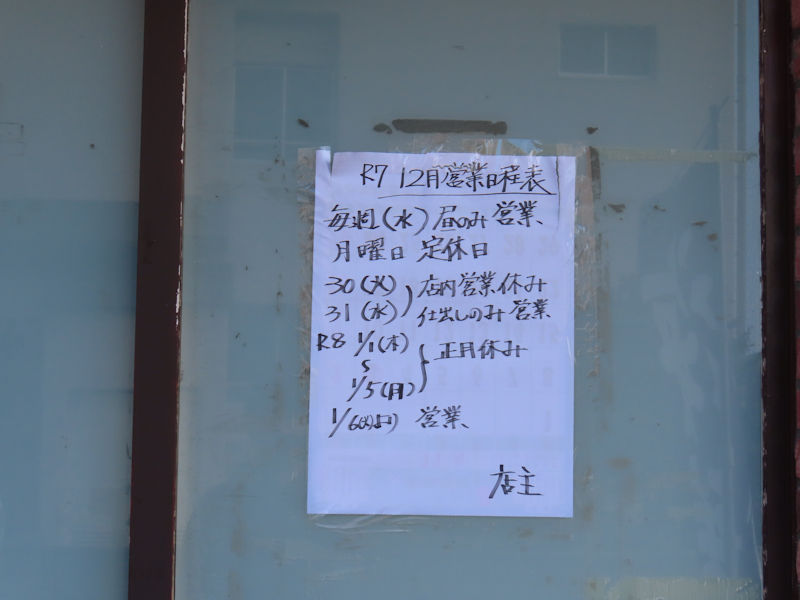 R7 12月営業日程表
毎週(水)昼のみ営業、
月曜日 定休日
30(火) 店内営業休み
31(水) 仕出しのみ営業
R8 1/1(木) 正月休み
~
1/5(月)
1/6 営業、
店主